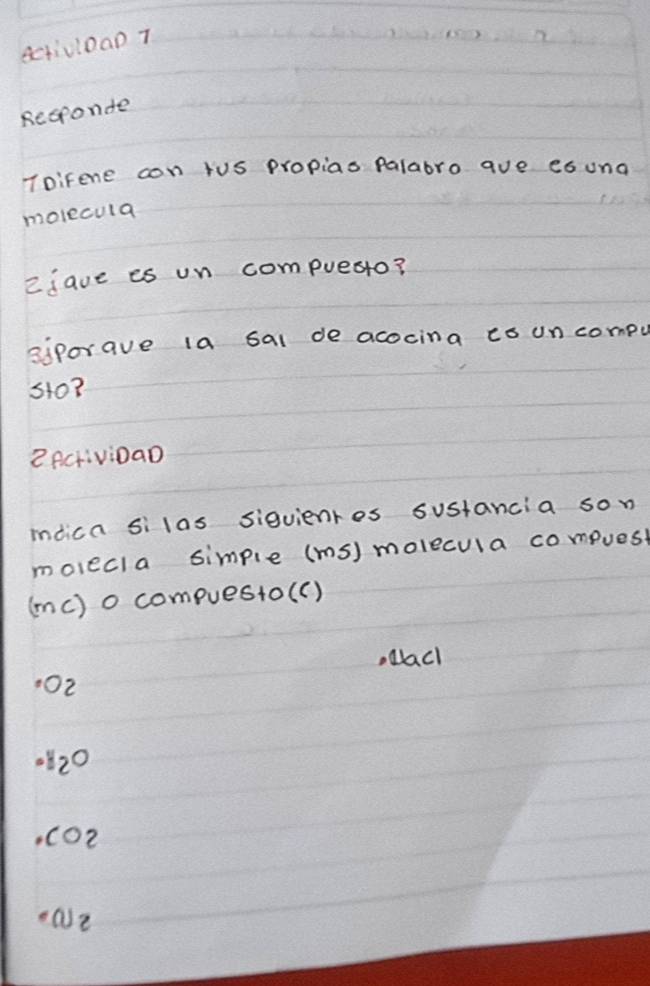 ActiviDaD 1
Responde
1 Difene con tus propias Palabro que es una
molecula
2¿que es un compuesto?
3¿porque la sal de acocina es un compu
sto?
2 ActiviDaD
indica si las siguientes sustancia son
molecla simple (ms) molecula compuest
(mc) o compuesto (c)
•O2 •Nacl
•H2O
•CO2
•N2